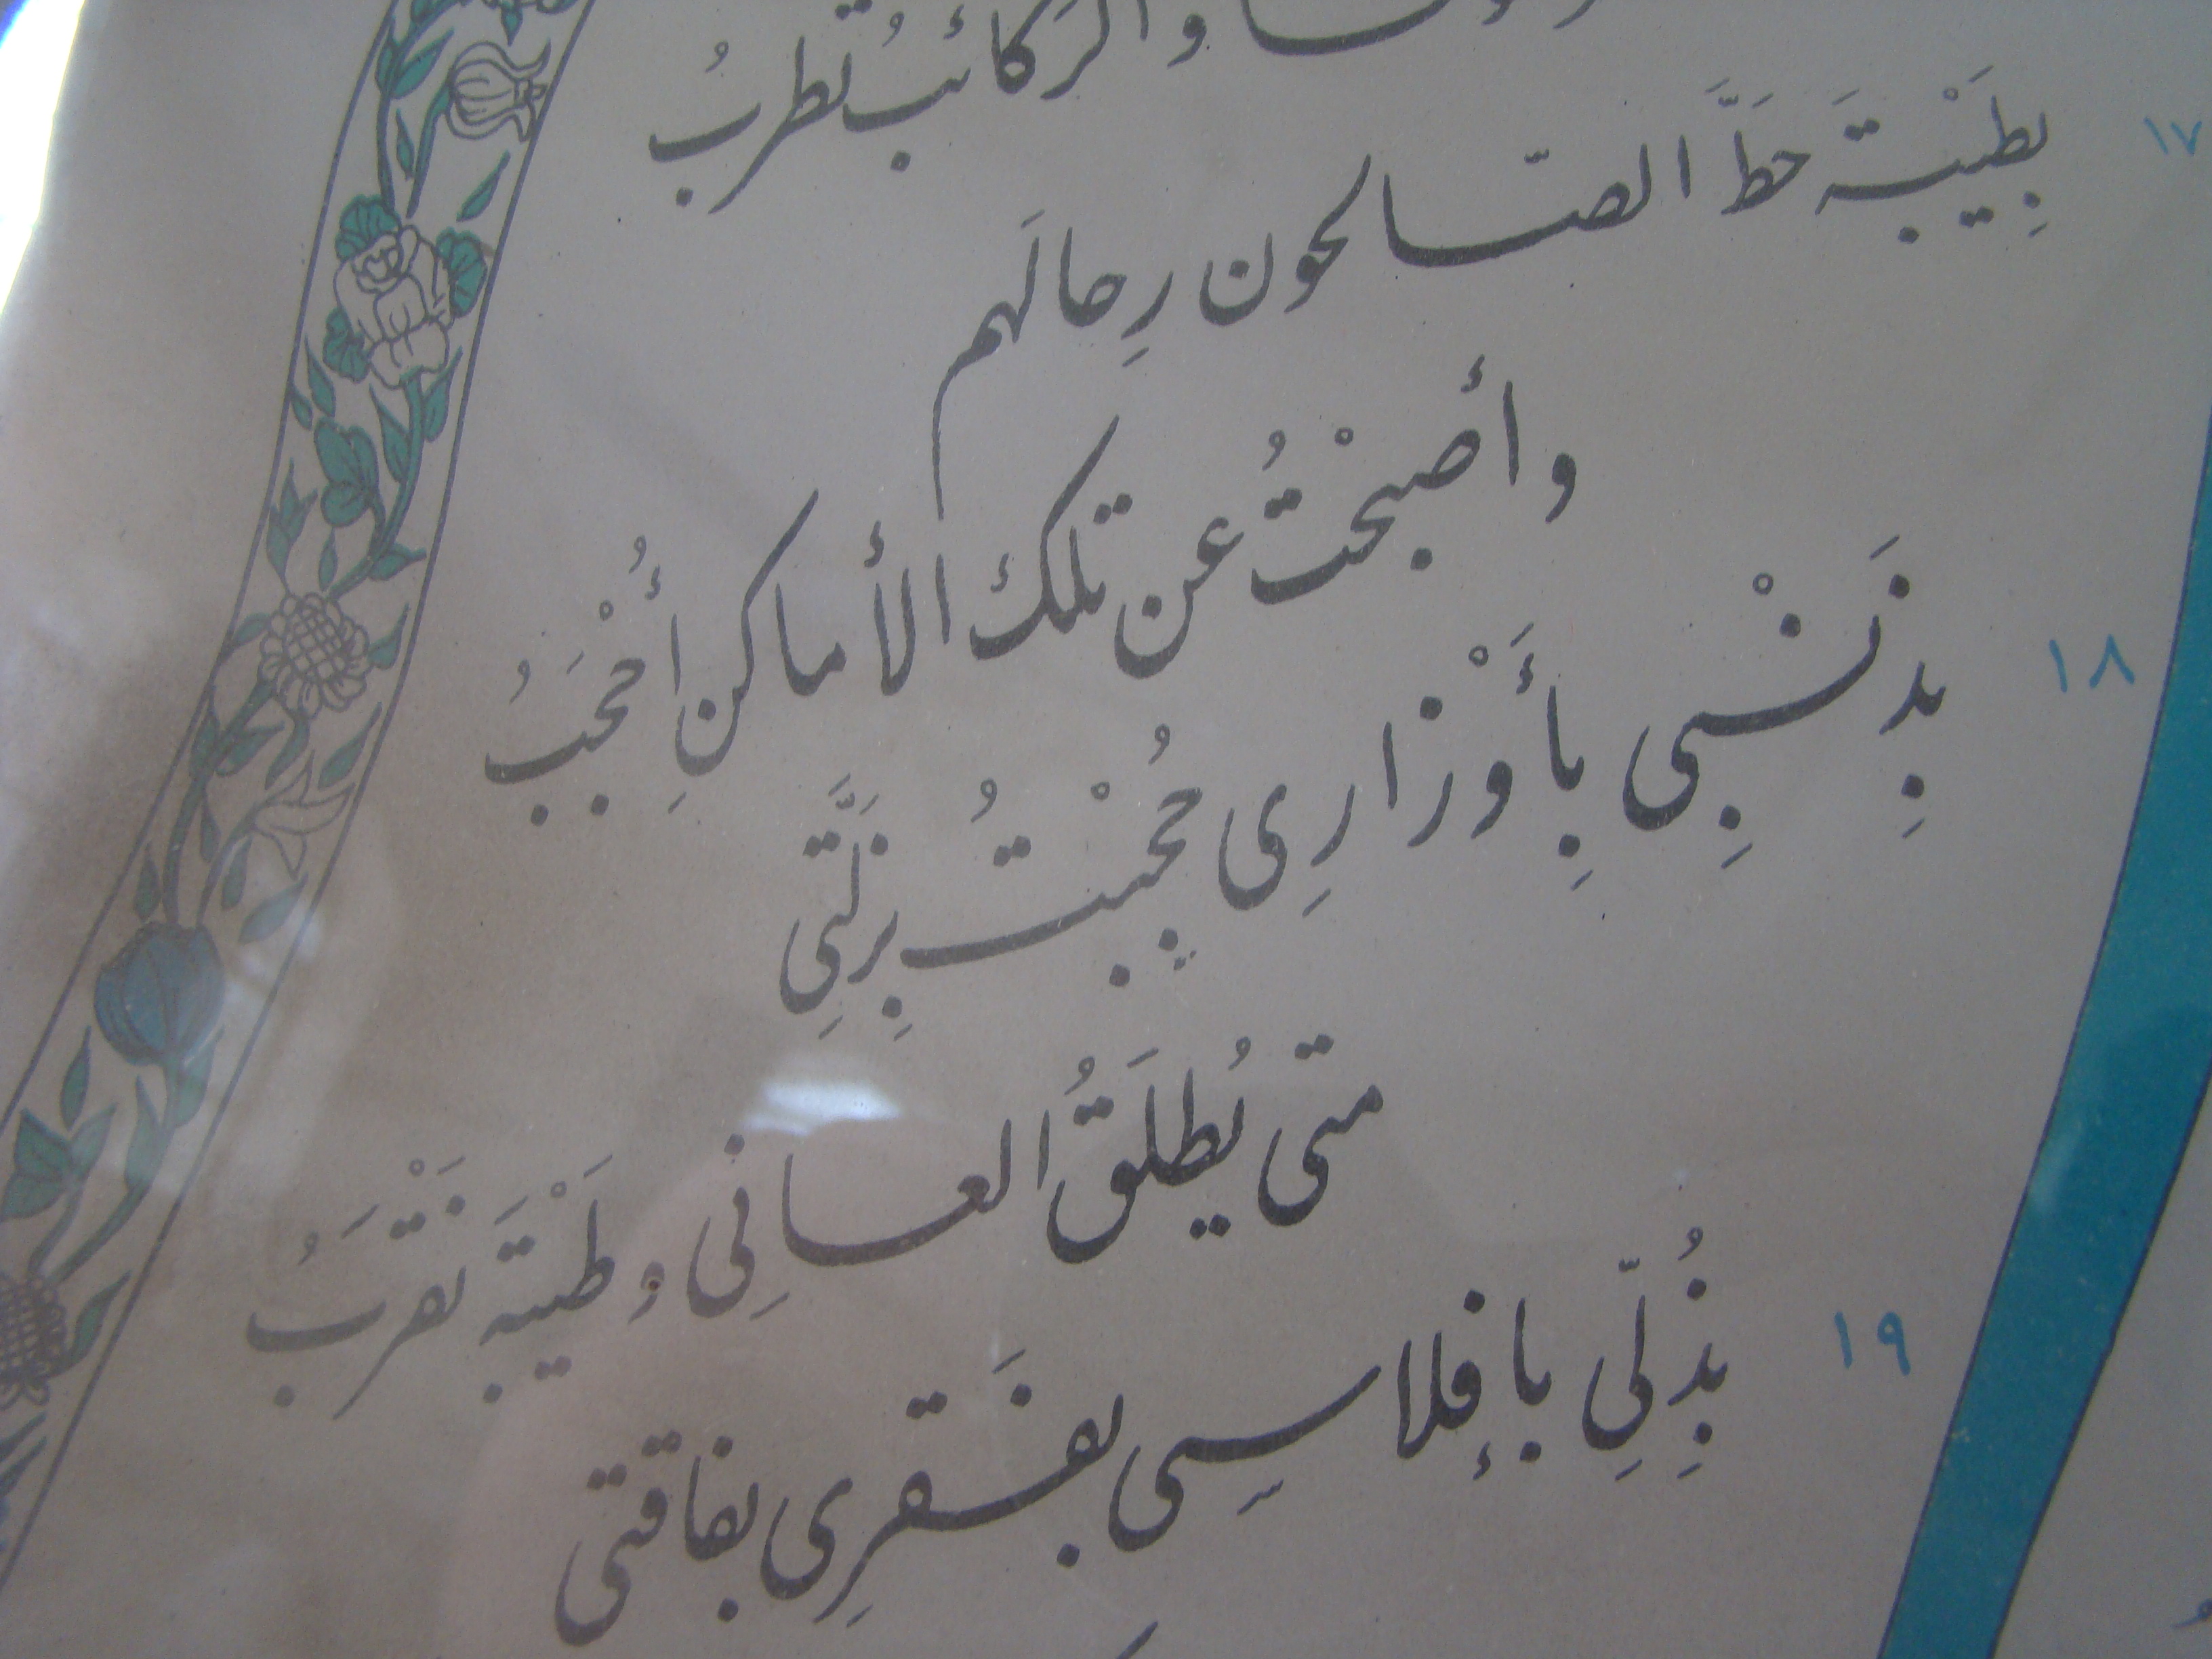 والرَكائبُ تطربُ
١٧ بِطَيْبةَ حَطَّ الصّالحون رِحالَهم
وأصبحْتُ عن تلك الأماكنِ أُحْجَبُ
١٨ بِذَنْبِى بِأَوْزارِى حُجِبْتُ بِزَلَّتِى
متى يُطلَقُ العانِى وطَيْبَةَ تَقْرَبُ
١٩ بِذُلِّى بإفلاسِى بفَقرِى بفاقتى